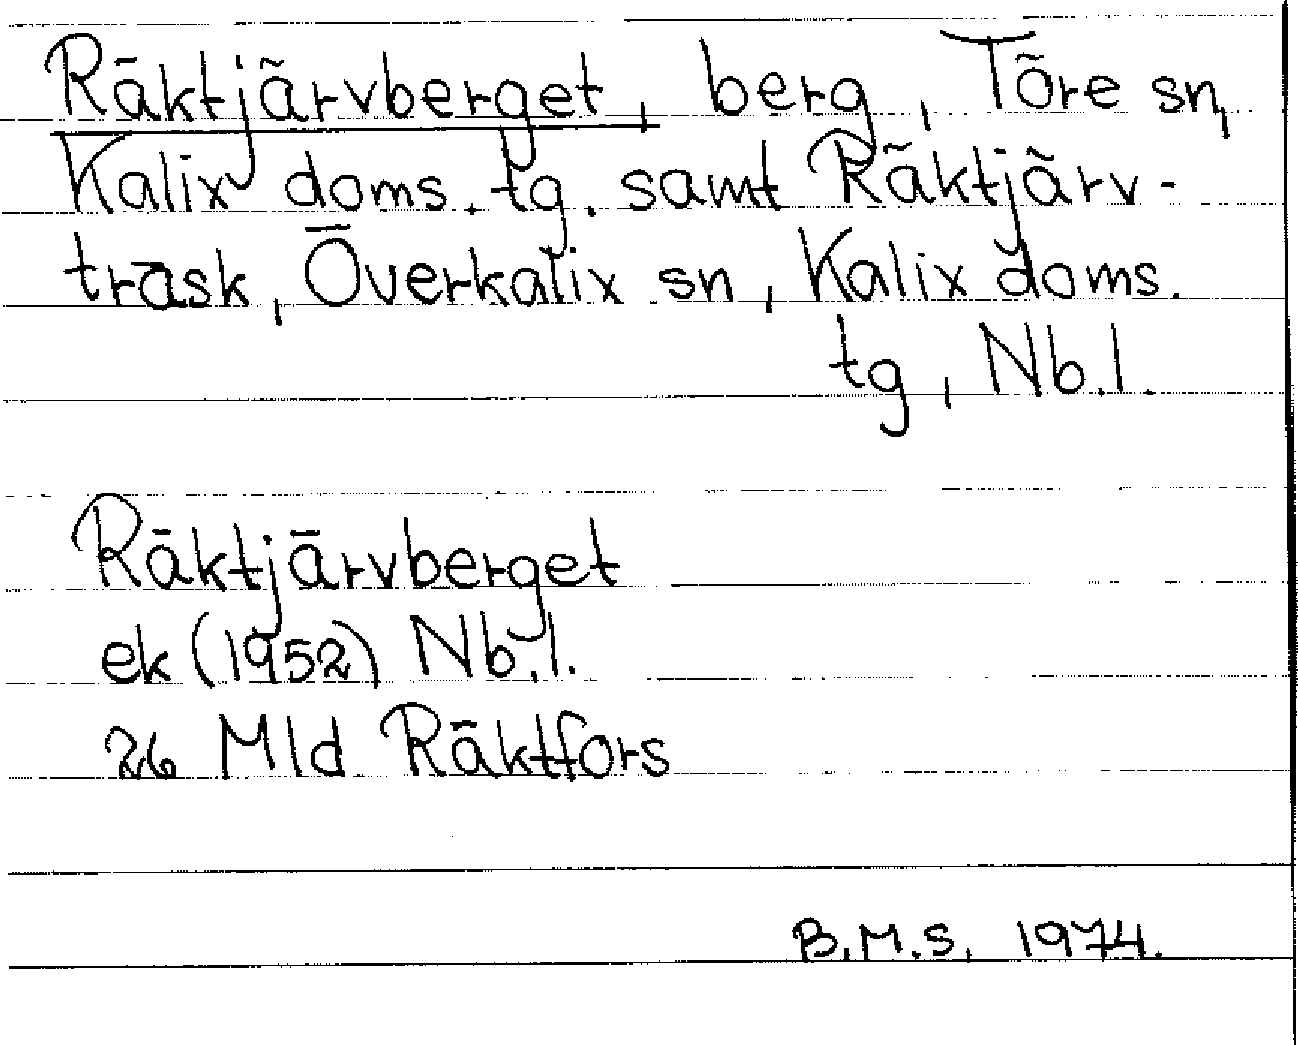 Räktjärvberget, berg, Töre sn,
Kalix doms. tg. samt Räktjärv-
träsk, Överkalix sn, Kalix doms.
tg, Nb.l.
Räktjärvberget
ek (1952) Nb.l.
26 Mld Räktfors
B.M.S. 1974.